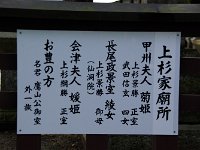 上杉家廟所
甲州夫人 菊姫
上杉景勝 正室
武田信玄 四女
長尾政景室 綾女
(仙洞院) 上杉景勝 御母
会津夫人 媛姫
上杉綱勝 正室
お豊の方
名君 鷹山公御室
外一族